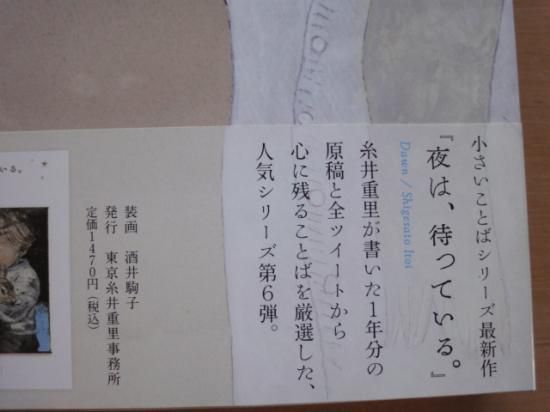 小さいことばシリーズ最新作
『夜は、待っている。』
Dawn / Shigesato Itoi
糸井重里が書いた1年分の
原稿と全ツイートから
心に残ることばを厳選した、
人気シリーズ第6弾。
装画 酒井駒子
発行 東京糸井重里事務所
定価1470円(税込)
いる。